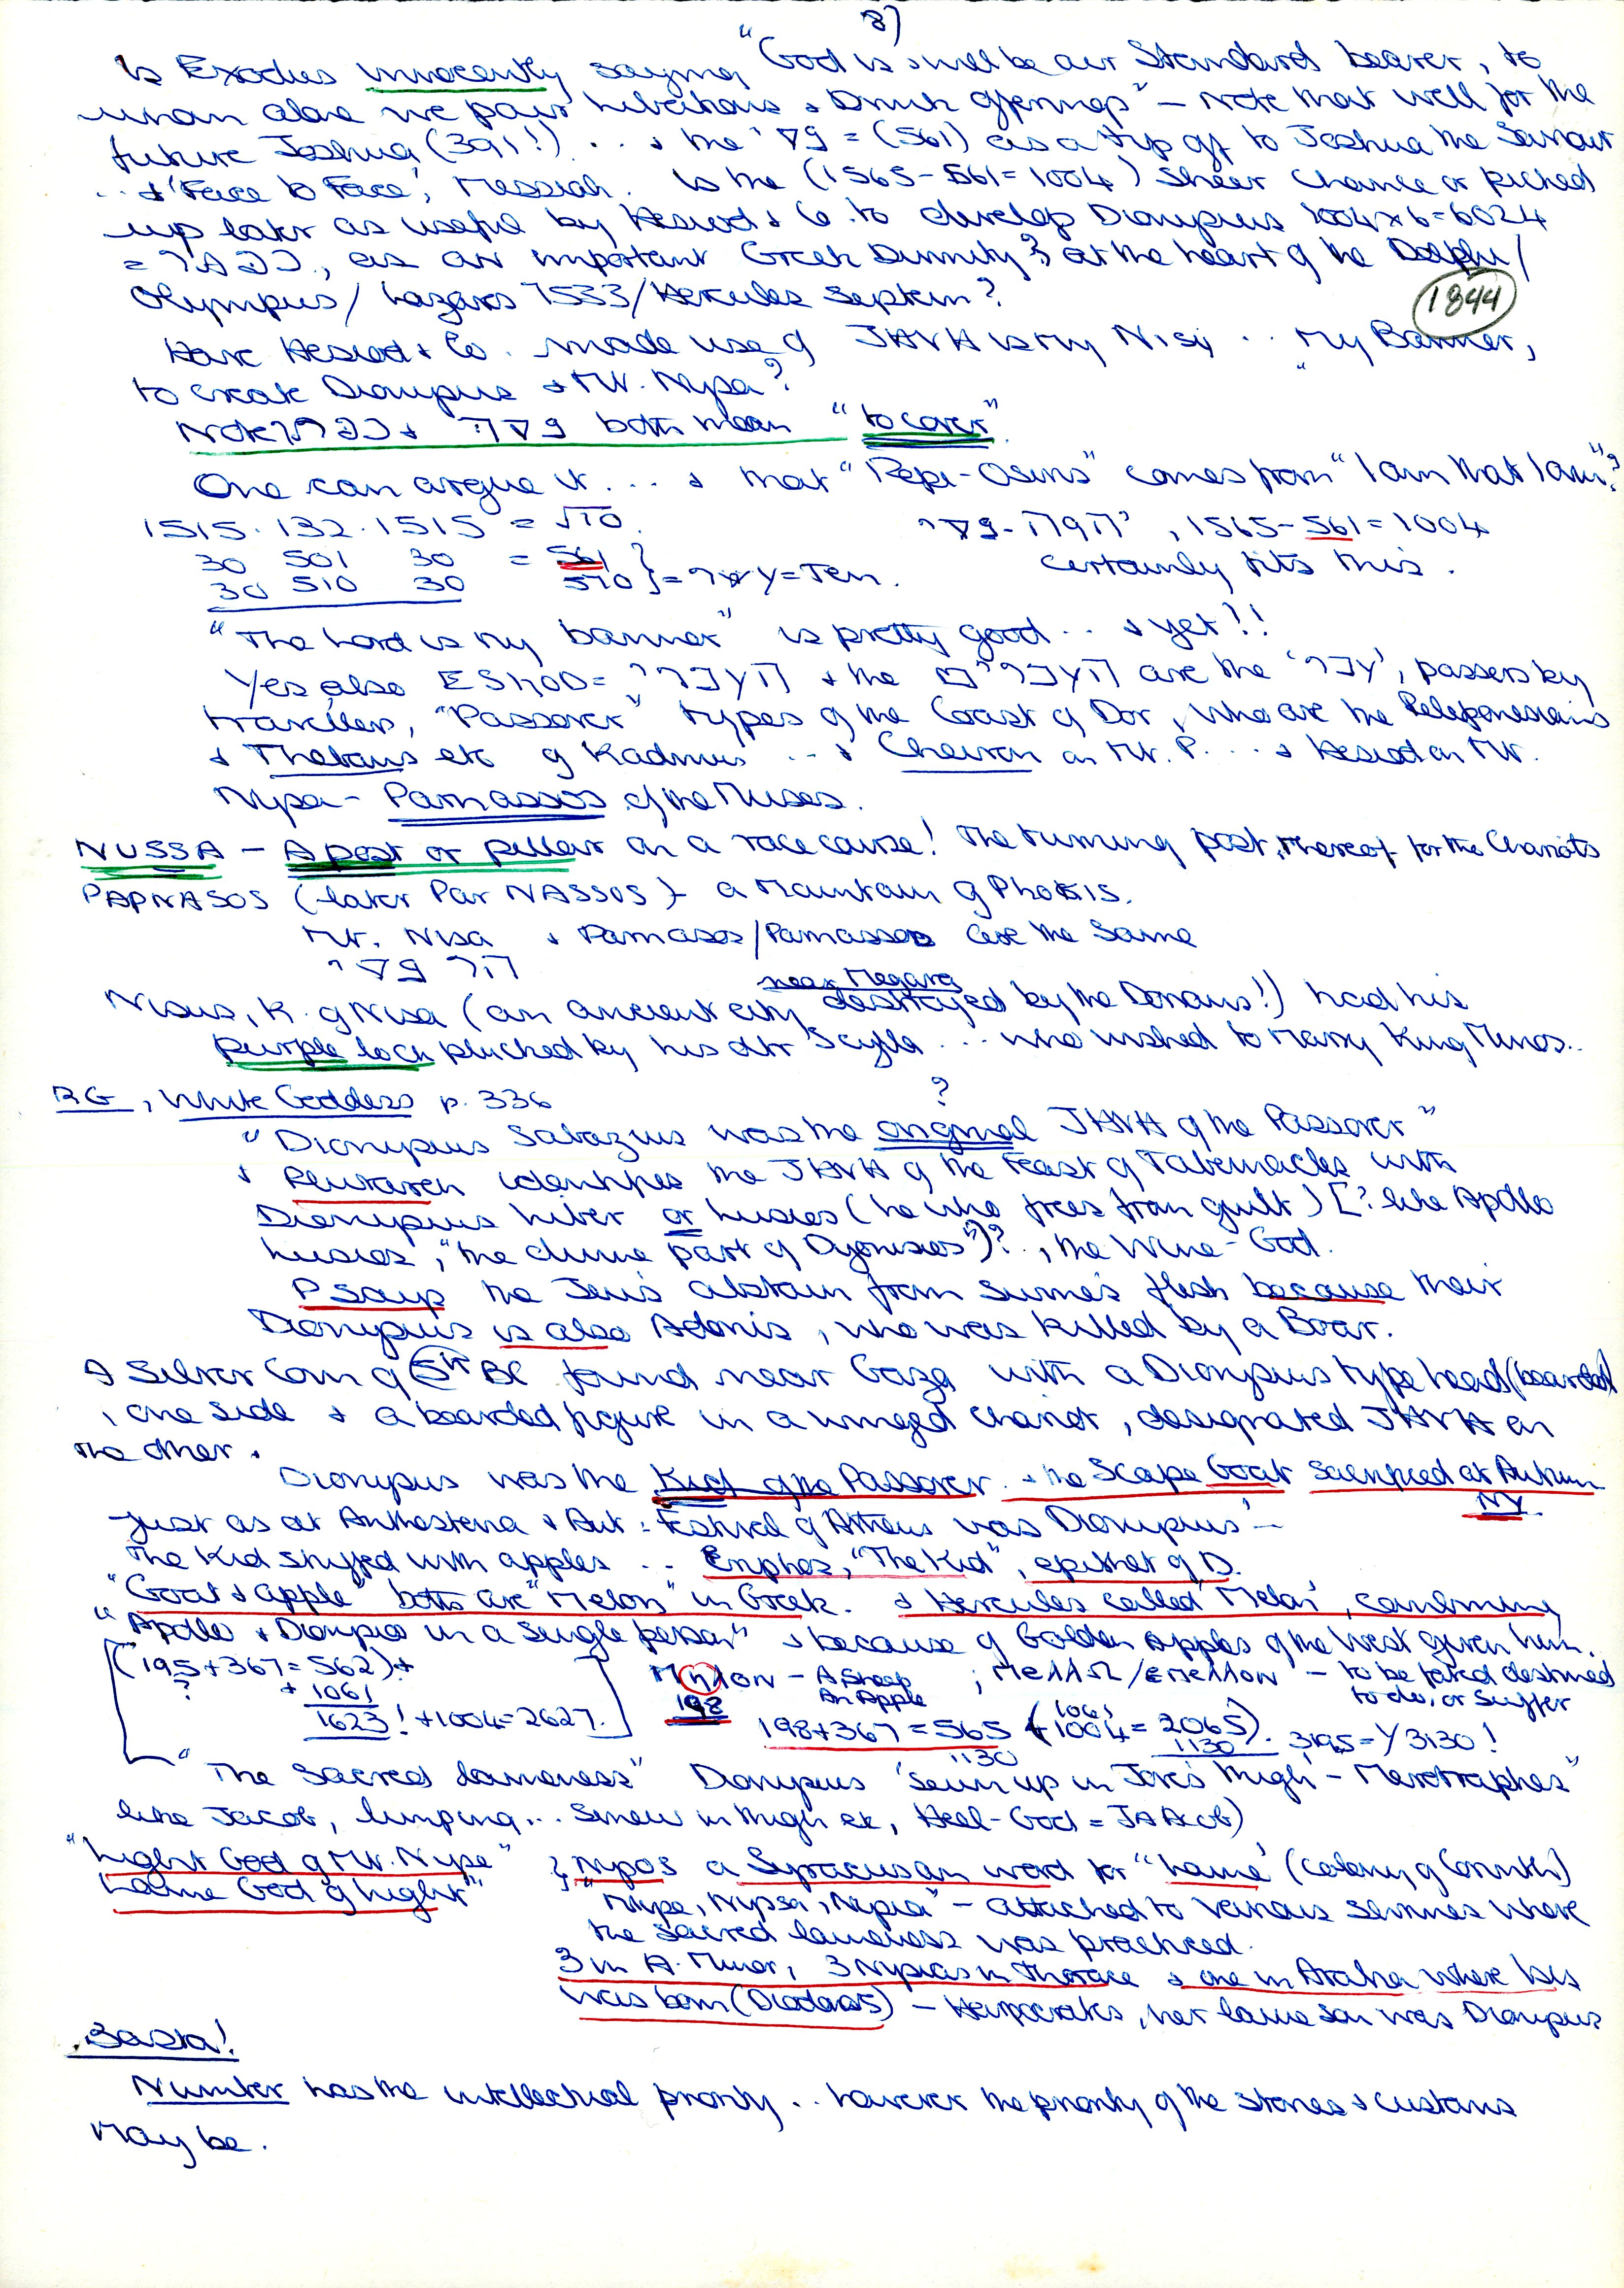 8)
Is Exodus innocently saying "God is & will be our Standard bearer, to
whom alone we pour libations & Drink offerings" – Note that well for the
future Joshua (391!) ... & the = (561) as a tip off to Joshua the Saviour
.. & 'Face to Face', Messiah. Is the (1565-561=1004) sheer chance or picked
up later as useful by Hesiod & Co. to develop Dionysus 1004x6=6024
= , as an important Greek Divinity? at the heart of the Delphi/
Olympus/ Lazaros 7533/Hercules Septum?
1844
Have Hesiod & Co. made use of JHVH is my Nisi .. "My Banner,
to create Dionysus & Mt. Nysa?
Note & both mean "to cover".
One can argue it.... & that "Pepi-Osiris" comes from "I am that I am"?
1515.132.1515 = √10. , 1565-561=1004
30 501 30 = 561 certainly fits this.
30 510 30 570 } = = Ten.
"The Lord is my banner" is pretty good... & yet!!
Yes, also ESIIOD= & the are the ' ', passers by
travellers, "Passover" types of the Coast of Dor, who are the Peloponessians
& Thebans etc of Kadmus ... & Cheiron on Mt. P.... & Hesiod on Mt.
Nysa – Parnassos of the Muses.
NUSSA – A post or pillar on a race course! The turning post, thereof for the Chariots
PAPNASOS (later Par NASSOS) – a Mountain of Phokis.
Mt. Nisa & Parnasos/Parnassos are the same
Nisus, K. of Nisa (an ancient city near Megara destroyed by the Dorians!) had his
purple lock plucked by his dtr Scylla ... who wished to marry King Minos..
RG, White Goddess p. 336
"Dionysus Sabazius was the original? JHVH of the Passover"
& Plutarch identifies the JHVH of the Feast of Tabernacles with
Dionysius Liber or Lusios (he who frees from guilt) [? like Apollo
Lusios, "the divine part of Dyonisos")?, the Wine-God.
P says the Jews abstain from swine's flesh because their
Dionysus is also Adonis, who was killed by a Boar.
A Silver Coin of 5th BC found near Gaza with a Dionysus type head (bearded)
, one side & a bearded figure in a winged chariot, designated JHVH on
the other.
Dionysus was the Kid of the Passover. & the Scape Goat sacrificed at Autumn
NY.
just as at Anthesteria & Aut: Festival of Athens was Dionysus' –
The Kid stuffed with apples ... Eriphos, "The Kid", epithet of D.
"Goat & apple" both are "Melon" in Greek. & Hercules called 'Melon', combining
"Apollo & Dionysus in a single person" & because of Golden Apples of the West given him.
(195+367=562)+
? + 1061
1623! +1004=2627.
MηΛON – A Sheep
An Apple
198
; MEΛΛΩ/EMEΛΛON – to be fated destined
to do, or suffer
198+367=565 (+1004=2065). 3195=Y3130!
1061
1130 1130
"The Sacred lameness" Dionysus 'sewn up in Jove's thigh' – Merotraphes"
like Jacob, limping... Sinew in thigh etc, Heel-God = JAHcob)
"Light God of Mt. Nysa"
Lame God of Light"
} Nysos a Syracusan word for "lame' (colony of Corinth)
"Nysa, Nyssa, Nysia" – attached to various shrines where
the sacred lameness was practiced.
3 in A. Minor, 3 Nysias in Thrace & one in Arabia where Isis
was born (Diodorus) – Harpocrates, her lame son was Dionysus
Basta!
Number has the intellectual priority .. however the priority of the stories & customs
may be.